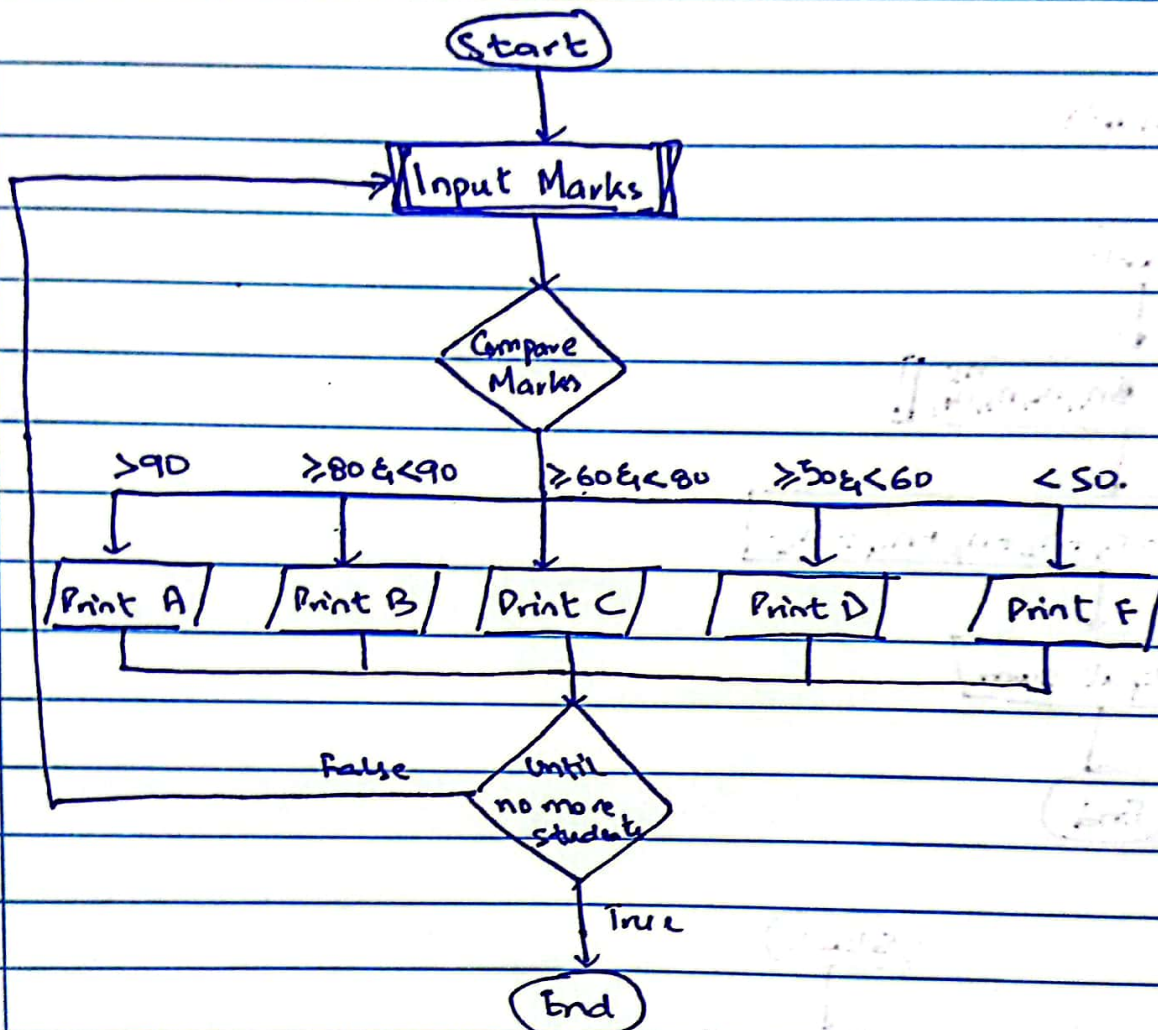 Start
Input Marks
Compare
Marks
>90
≥80 & <90
≥60 & <80
≥50 & <60
<50.
Print A
Print B
Print C
Print D
Print F
False
until
no more
students
True
End